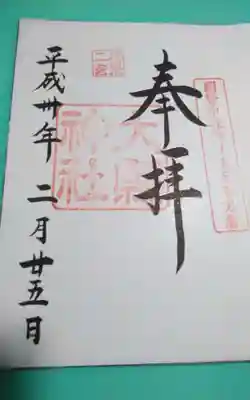 奉拝
大縣
神社
二宮
平成卅年 二月廿五日